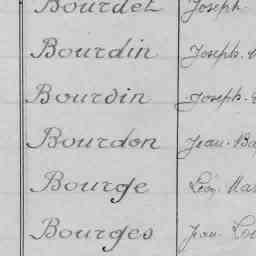 Bourdel Joseph
Bourdin Joseph
Bourdin Joseph
Bourdon Jean
Bourge Léon
Bourges Jean